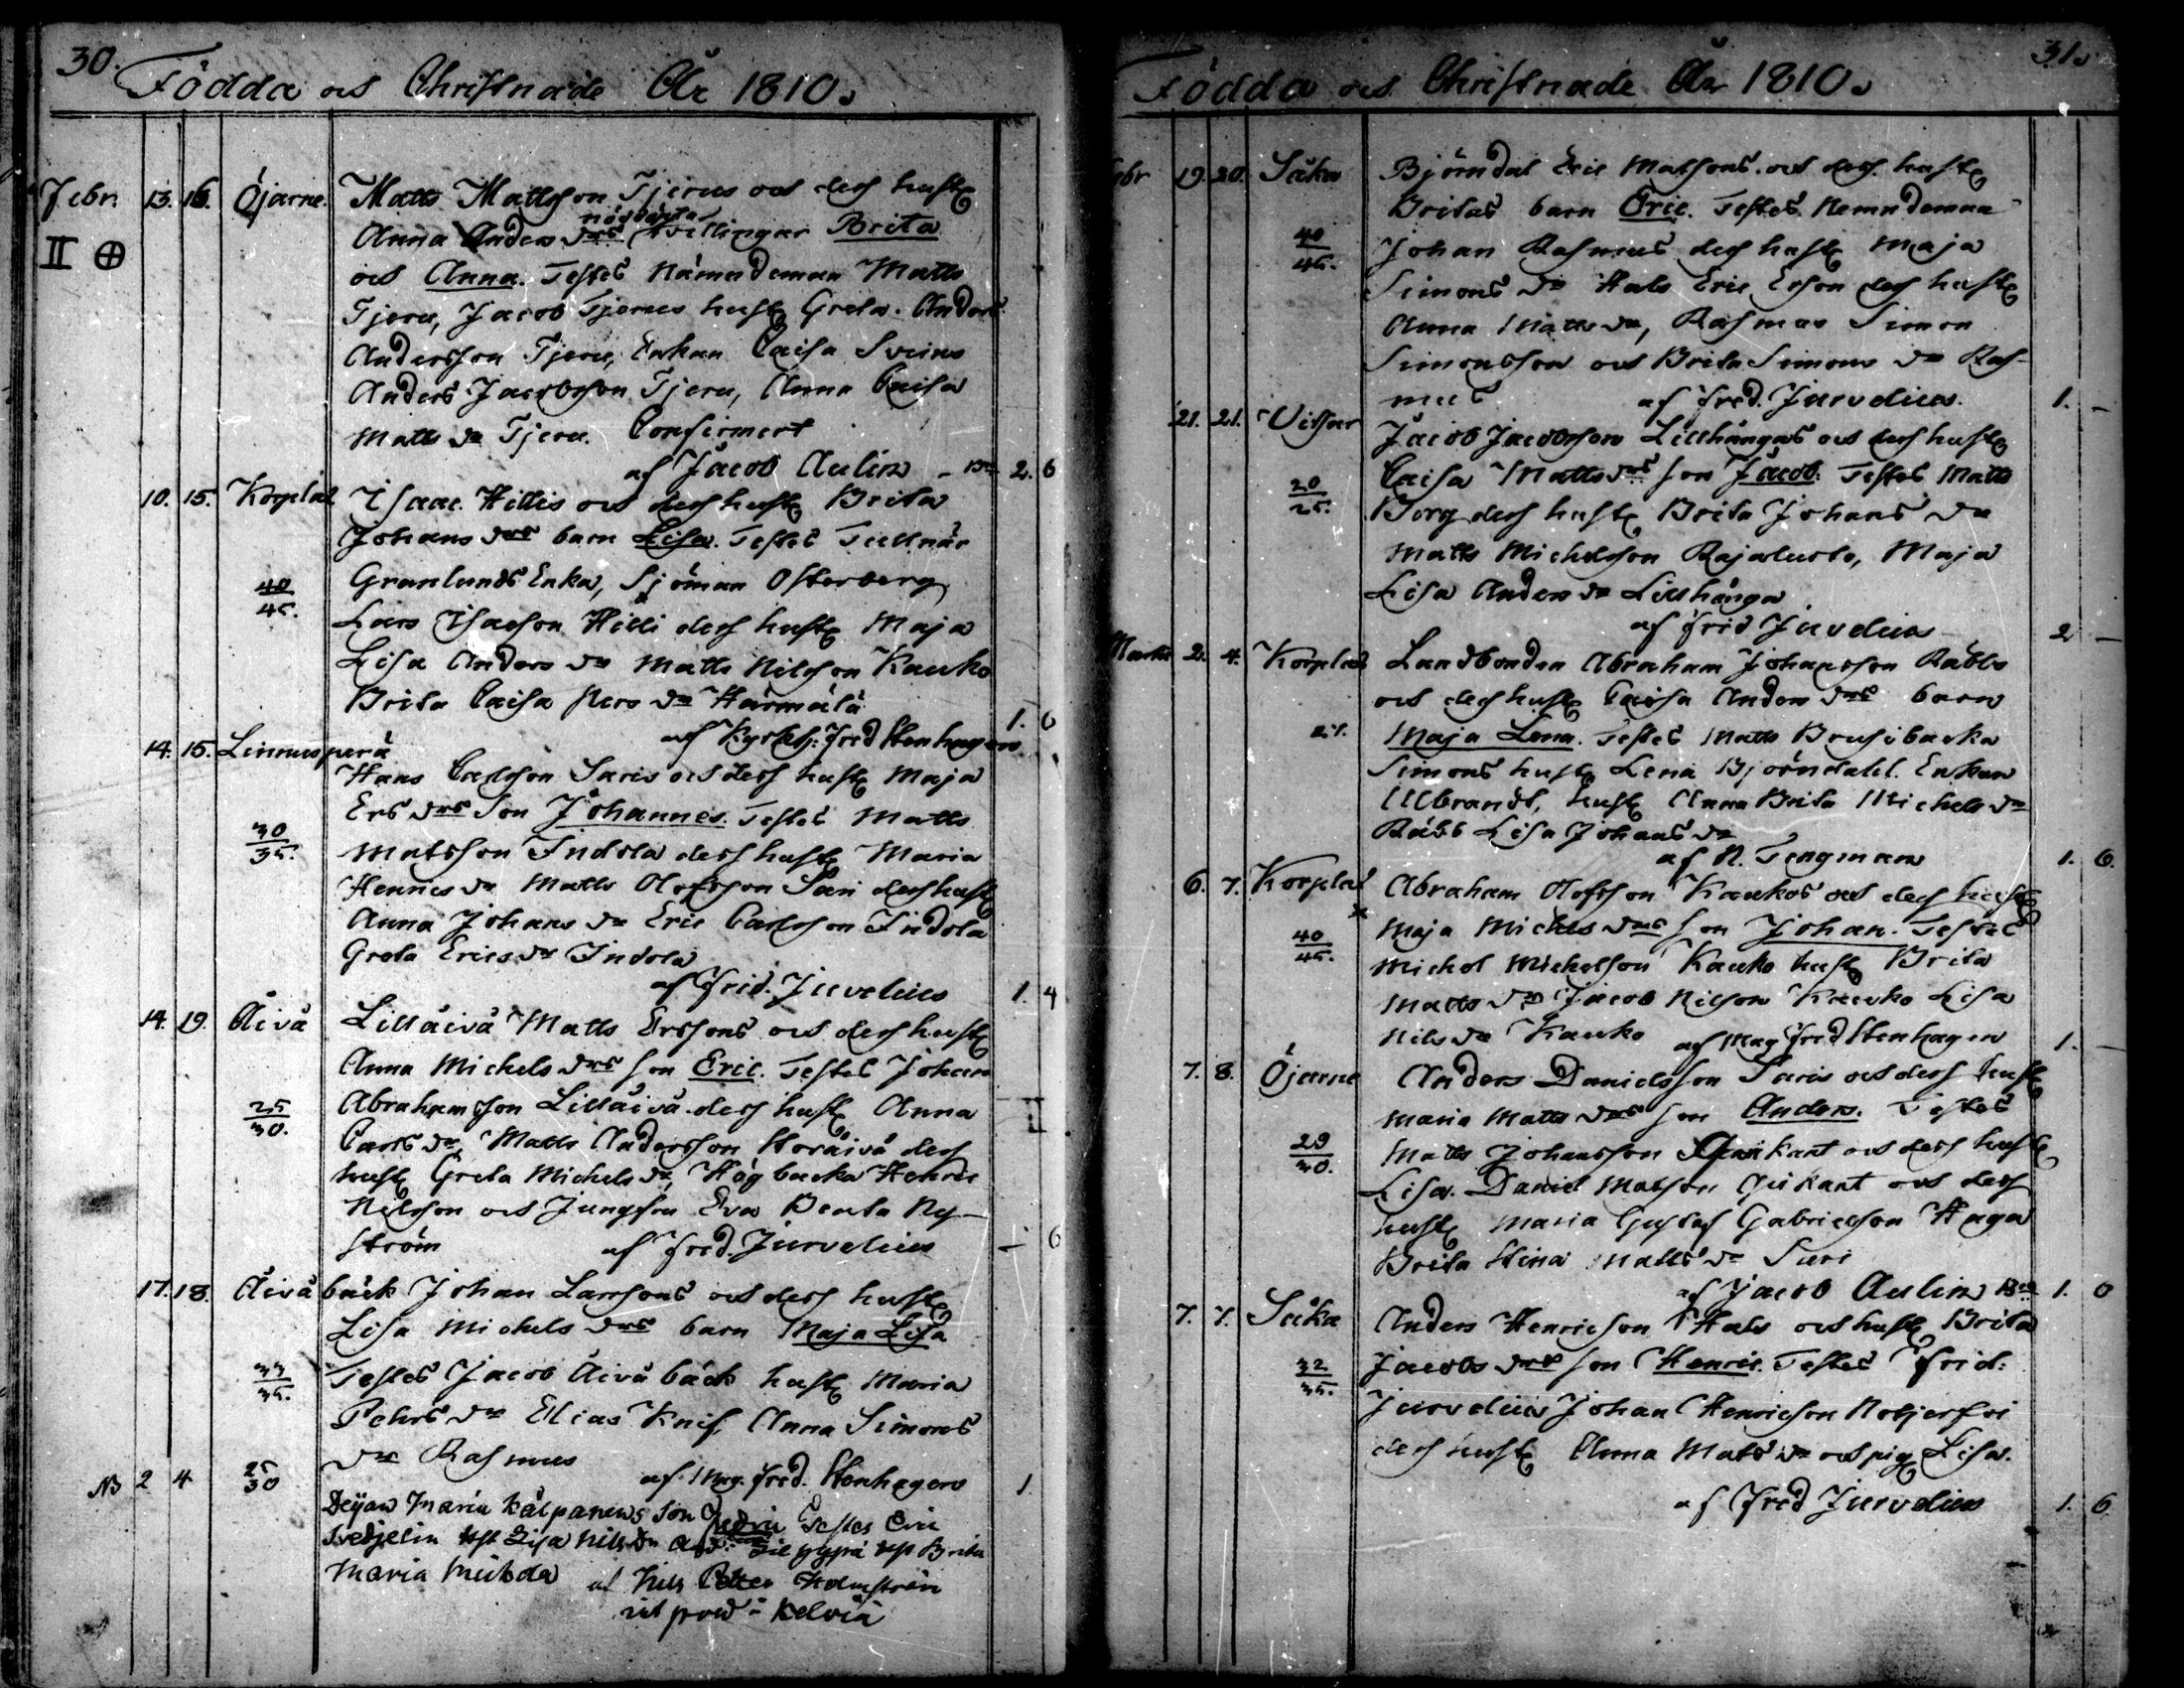 30.
Födda och Christnade År 1810.
Febr. 13. 16. Öjarne. Matts Mattsson Tjerus och dess hust
nödöpta
Anna Anders drs tvillingar Brita
II och Anna. Testes Nämndeman Matts
Tjeru, Jacob Tjerus hust Greta. Anders
Andersson Tjeru, Enkan Caisa Sveins
Anders Jacobsson Tjeru, Anna Caisa
Matts dr Tjeru. Confirmert
af Jacob Aulin 2. 6
10. 15. Korplax Isaac Hillis och dess hust Brita
Johans drs barn Lisa. Testes Tullnär
40/45. Granlunds Enka, Sjöman Österberg
Lars Isacson Hilli dess hust Maja
Lisa Anders dr Matts Nilsson Kauko
Brita Caisa Pers dr Härmälä
af Fred Stenhagen 1. 6
14. 15. Linnusperä
Hans Carlsson Saris och dess hust Maja
Ers drs son Johannes. Testes Matts
30/35. Matsson Indola dess hust Maria
Hennes dr Matts Olofsson Sari dess hust
Anna Johans dr Eric Carlsson Indola
Greta Erics dr Indola
af Frid. Jurvelius 1. 4
14. 19. Åivå Lillåivå Matts Erssons och dess hust
Anna Michels drs son Eric. Testes Johan
25/30. Abrahamsson Lillåivå dess hust Anna
Carls dr, Matts Andersson Storåivå dess
hust Greta Michels dr, Högbacka Henric
Nilsson och Jungfru Eva Beata Ny-
ström af Fred. Jurvelius – 6
17. 18. Åivå bäck Johan Larssons och dess hust
Lisa Michels drs barn Maja Lisa
33/35. Testes Jacob Åivåbäck hust Maria
Pehrs dr Elias Knif, Anna Simons
dr Rasmus
af Mag. Fred. Stenhagen 1
NB 2 4 25/30
Dejan Maria Kälpanens son Testes Eric
Svedjelin hust Lisa Nils dr hust Brita
Maria
af Nils Petter Holmström
i Kelviå
31.
Födda och Christnade År 1810.
Febr 19. 20. Såka Björndal Eric Matsons och dess hust
Britas barn Eric. Testes Nemndeman
40/45. Johan Rasmus dess hust Maja
Simons dr Hals Eric Erson dess hust
Anna Matts dr, Rasmus Simon
Simonsson och Brita Simons dr Ras-
mus af Fred. Jurvelius. 1. –
21. 21. Vitsar Jacob Jacobsson Lillhångas och dess hust
Caisa Matts drs son Jacob. Testes Matts
20/25. Borg dess hust Brita Johans dr
Matts Michelsson Rajalusto, Maja
Lisa Anders dr Lillhånga
af Frid Jurvelius 2 –
Martii 2. 4. Korplax Landbonden Abraham Johansson Räbbs
och dess hust Caisa Anders drs barn
Maja Lena. Testes Matts Brusibacka
Simons hust Lena Björndahl. Enkan
Ulbrandt, hust Anna Brita Michels dr
Räbb Lisa Johans dr
af N. Tengman 1. 6.
6. 7. Korplax Abraham Olofsson Kaukos och dess hust
40/45. Maja Michels drs son Johan. Testes
Michel Michelsson Kauko hust Brita
Matts dr Jacob Nilson Kauko Lisa
Nils dr Kauko af Mag Fred Stenhagen 1. –
7. 8. Öjarne Anders Danielsson Saris och dess hust
Maria Matts drs son Anders. Testes
29/30. Matts Johansson och dess hust
Lisa. Daniel Matsson och dess
hust Maria Gustaf Gabrielsson Haga
Brita Stina Matts dr Sari
af Jacob Aulin 1. 0
7. 7. Såka Anders Henricson Hals och hust Brita
32/35. Jacobs drs son Henric. Testes Frid:
Jurvelius Johan Henricson
dess hust Anna Mats dr och pig Lisa.
af Fred Jurvelius 1. 6